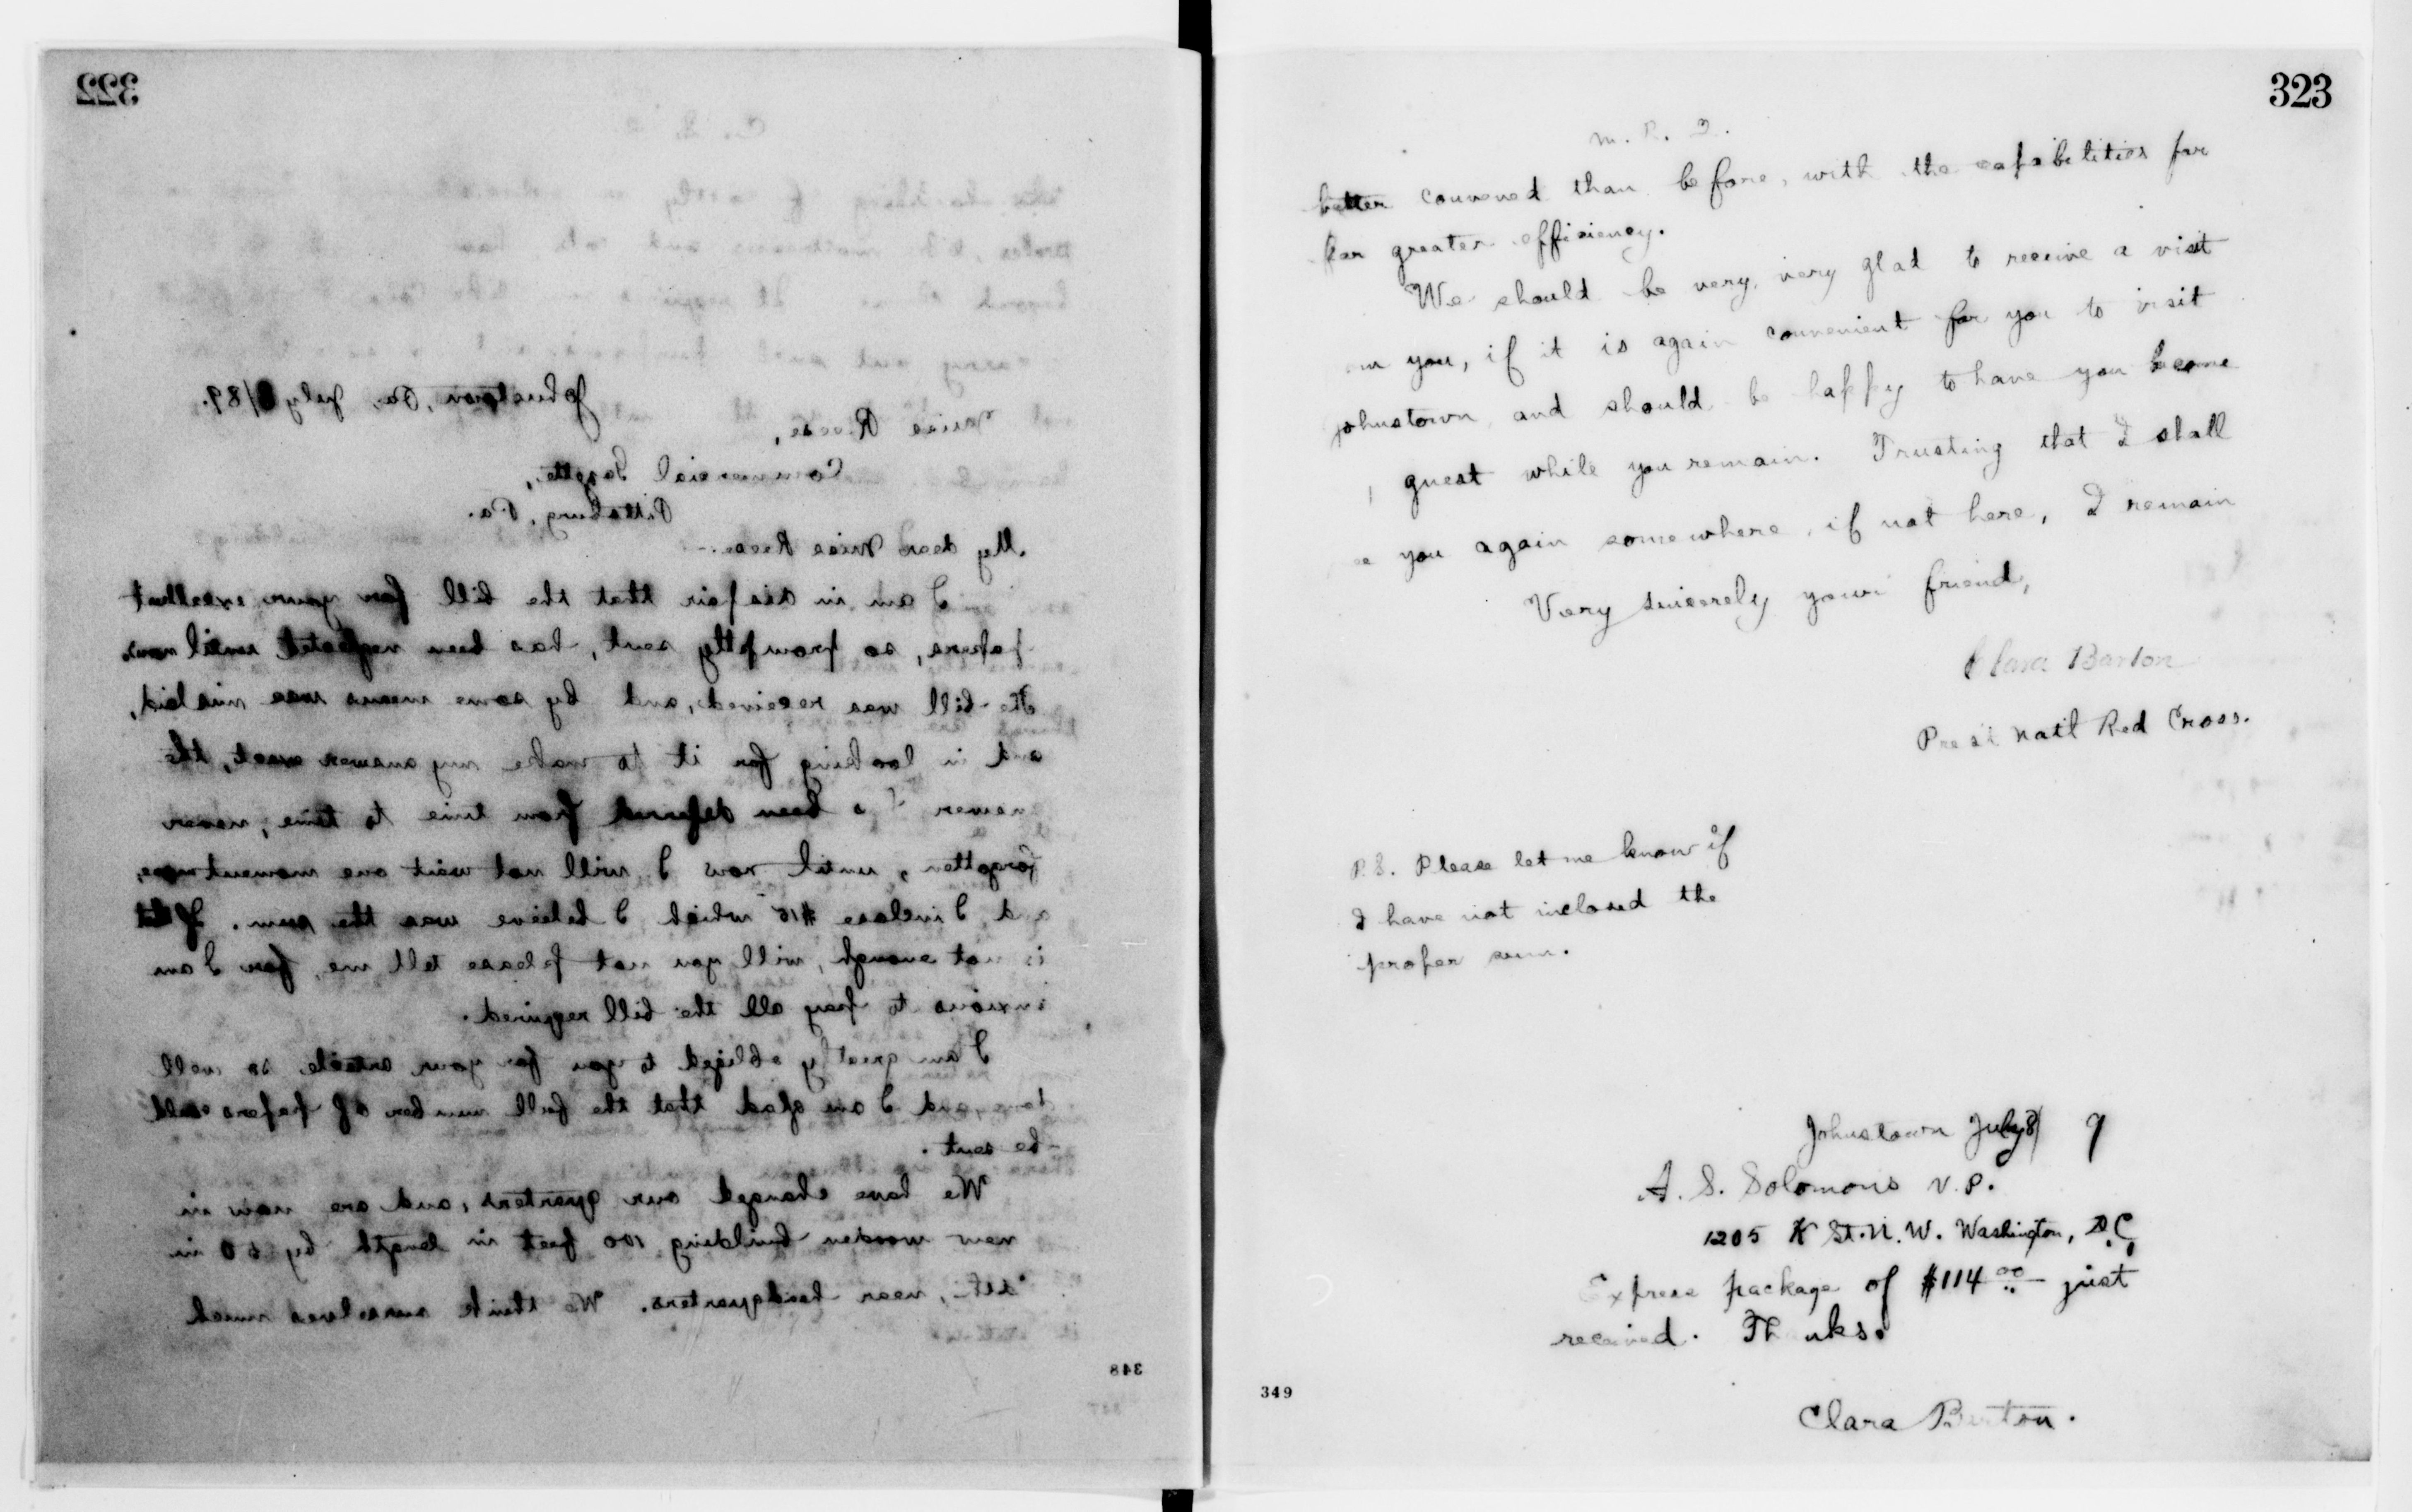 322
Johnstown, Pa, July /89.
Miss Reese,
Commercial Gazette,
Pittsburg, Pa.
My dear Miss Reese:-
I am in despair that the bill for your excellent
papers, so promptly sent, has been neglected until now.
the bill was received, and by some means was mislaid,
and in looking for it to make my answer exact, the
been deferred from time to time, never
forgotten, until now I will not wait one moment more,
and I inclose $15 which I believe was the sum. If that
is not enough, will you not please tell me, for I am
anxious to pay all the bill required.
I am greatly obliged to you for your article so well
done, and I am glad that the full number of papers could
be sent.
We have changed our quarters, and are now in
new wooden building 100 feet in length by 50 in
, near headquarters. We think ourselves much
348
323
M. R. 2.
better convened than before, with the capabilities for
far greater efficiency.
We should be very, very glad to receive a visit
om you, if it is again convenient for you to visit
Johnstown, and should be happy to have you become
guest while you remain. Trusting that I shall
ee you again somewhere, if not here, I remain
Very sincerely your friend,
Clara Barton
Prest Nat'l Red Cross.
P.S. Please let me know if
I have not inclosed the
proper sum.
Johnstown July 8/ 9
A. S. Solomons V.P.
1205 K St. N. W. Washington, D.C,
Express package of $114 00 just
received. Thanks.
Clara Barton.
349